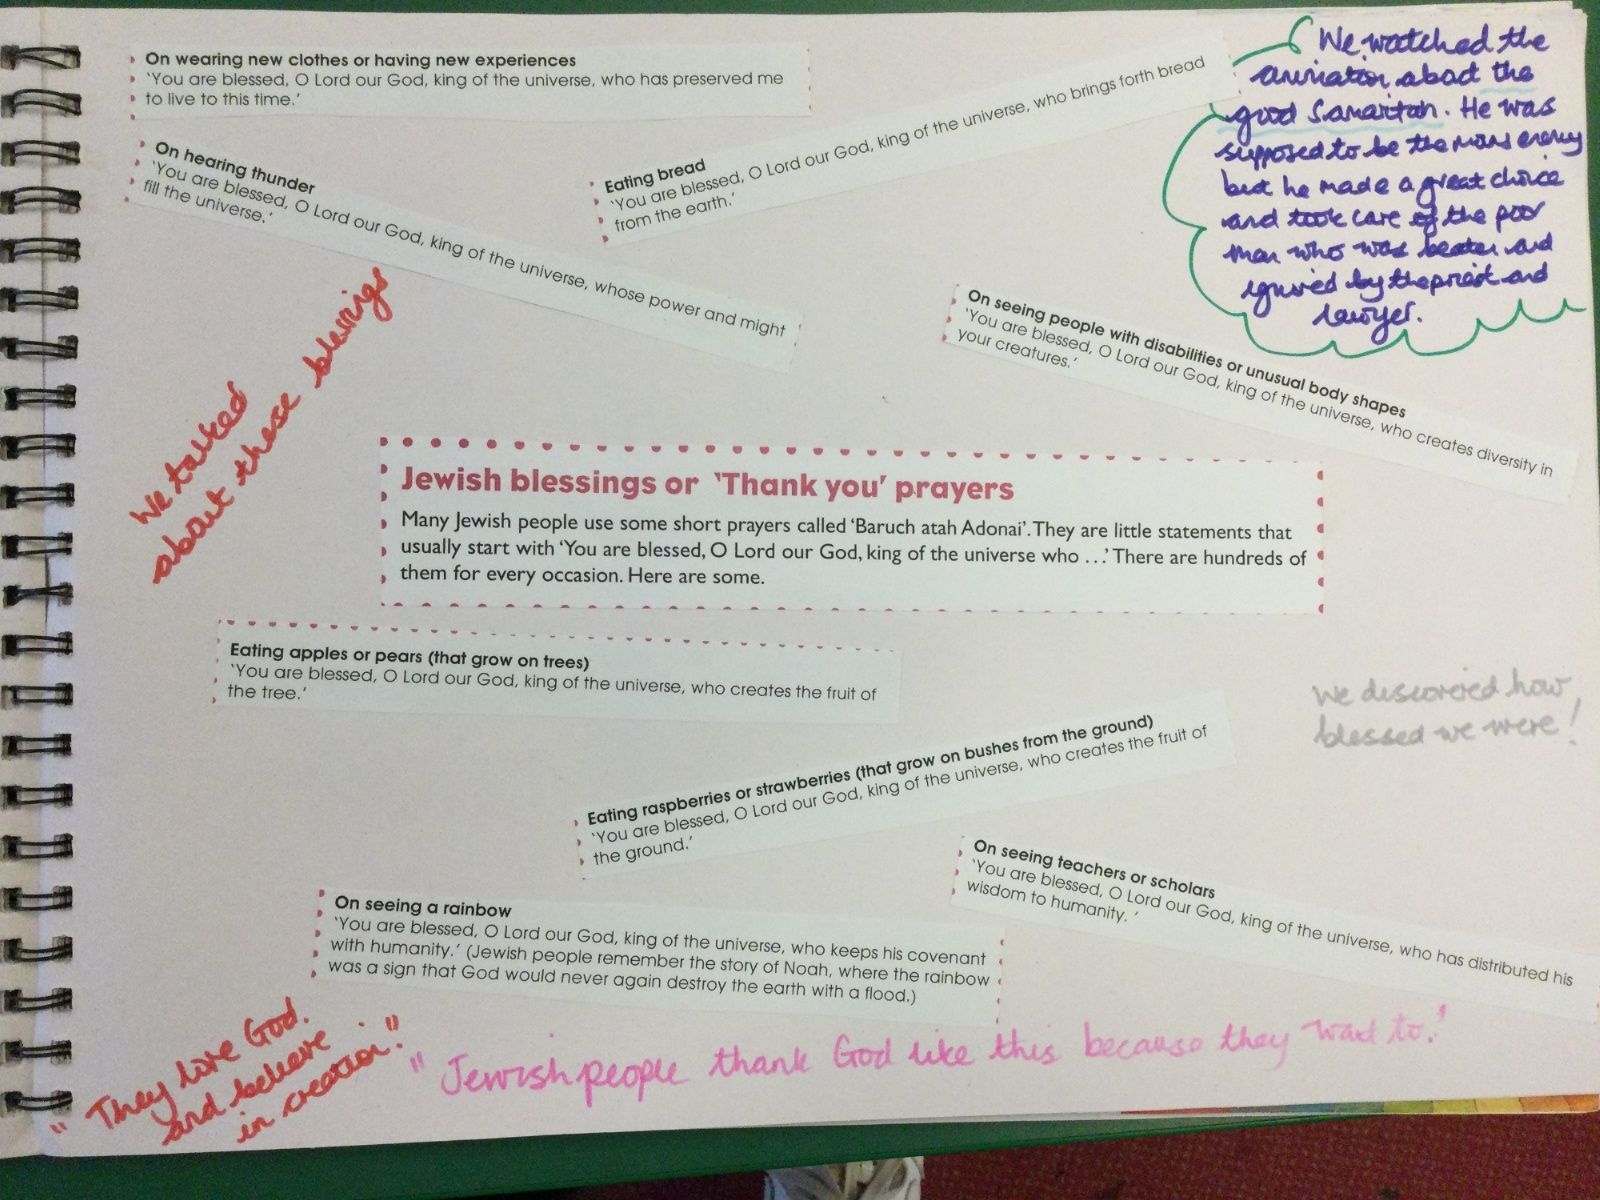 On wearing new clothes or having new experiences
'You are blessed, O Lord our God, king of the universe, who has preserved me
to live to this time.'
On hearing thunder
'You are blessed, O Lord our God, king of the universe, whose power and might
fill the universe.'
Eating bread
'You are blessed, O Lord our God, king of the universe, who brings forth bread
from the earth.'
We watched the
animation about the
good Samaritan. He was
supposed to be the mans enemy
but he made a great choice
and took care of the poor
man who was beaten and
ignored by the priest and
lawyer.
On seeing people with disabilities or unusual body shapes
'You are blessed, O Lord our God, king of the universe, who creates diversity in
your creatures.'
We talked
about these blessings
Jewish blessings or 'Thank you' prayers
Many Jewish people use some short prayers called 'Baruch atah Adonai'. They are little statements that
usually start with 'You are blessed, O Lord our God, king of the universe who ...' There are hundreds of
them for every occasion. Here are some.
Eating apples or pears (that grow on trees)
'You are blessed, O Lord our God, king of the universe, who creates the fruit of
the tree.'
We discovered how
blessed we were!
Eating raspberries or strawberries (that grow on bushes from the ground)
'You are blessed, O Lord our God, king of the universe, who creates the fruit of
the ground.'
On seeing teachers or scholars
'You are blessed, O Lord our God, king of the universe, who has distributed his
wisdom to humanity. '
On seeing a rainbow
'You are blessed, O Lord our God, king of the universe, who keeps his covenant
with humanity.' (Jewish people remember the story of Noah, where the rainbow
was a sign that God would never again destroy the earth with a flood.)
"They love God.
and believe
in creation."
"Jewish people thank God like this because they want to."